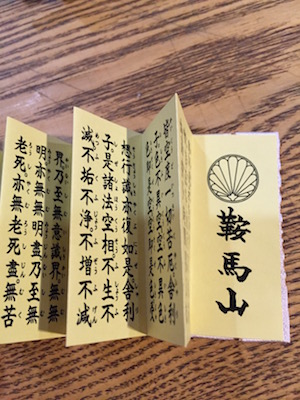 鞍馬山
皆空度一切苦厄舍利
子色不異空空不異色
色即是空空即是色受
想行識亦復如是舍利
子是諸法空相不生不
滅不垢不浄不増不減
界乃至無意識界無無
明亦無無明盡乃至無
老死亦無老死盡無苦